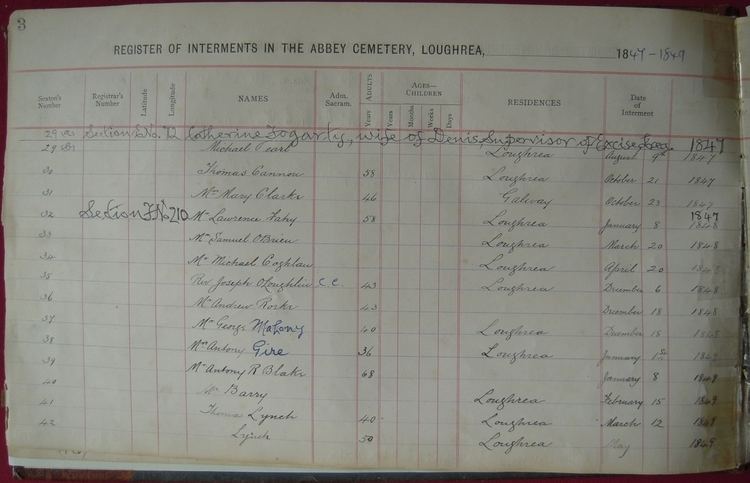 3
REGISTER OF INTERMENTS IN THE ABBEY CEMETERY, LOUGHREA, 1847-1849
Sexton's Number Registrar's Number Latitude Longitude NAMES Adm. Sacram. ADULTS Years AGES— CHILDREN Years Months Weeks Days RESIDENCES Date of Interment
Section No. 12 Catherine Fogarty, wife of Denis Supervisor of Excise 1847
Michael Loughrea August 9th 1847
30 Thomas Cannon 58 Loughrea October 21 1847
31 Mrs Mary Clarke 46 Galway October 23 1847
32 Section F No 210 Mr Lawrence Fahy 58 Loughrea January 8 1847 1848
33 Mr Samuel O'Brien Loughrea March 20 1848
34 Mr Michael Coghlan Loughrea April 20 1848
35 Rev Joseph O'Loughlin C.C. 43 Loughrea December 6 1848
36 Mr Andrew Rorke 43 December 18 1848
37 Mr George Mahony 40 Loughrea December 18 1848
38 Mrs Antony Gire 36 Loughrea January 1st
39 Mr Antony R Blake 68 January 8
40 Mr Barry Loughrea February 15 1849
41 Thomas Lynch 40 Loughrea March 12
42 Lynch 50 Loughrea May 1849